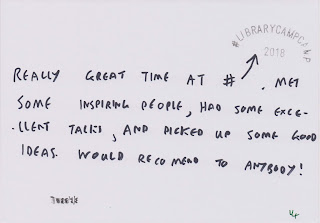 #LIBRARYCAMPCAMP
2018
REALLY GREAT TIME AT # . MET
SOME INSPIRING PEOPLE, HAD SOME EXCE-
-LLENT TALKS, AND PICKED UP SOME GOOD
IDEAS. WOULD RECOMEND TO ANYBODY!